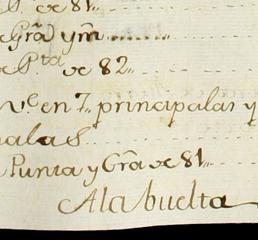 P. de 81
Grã y m̃
de P.ta de 82
v.e en 7. principalas y
nalas
Punta y Grã de 81
A la buelta